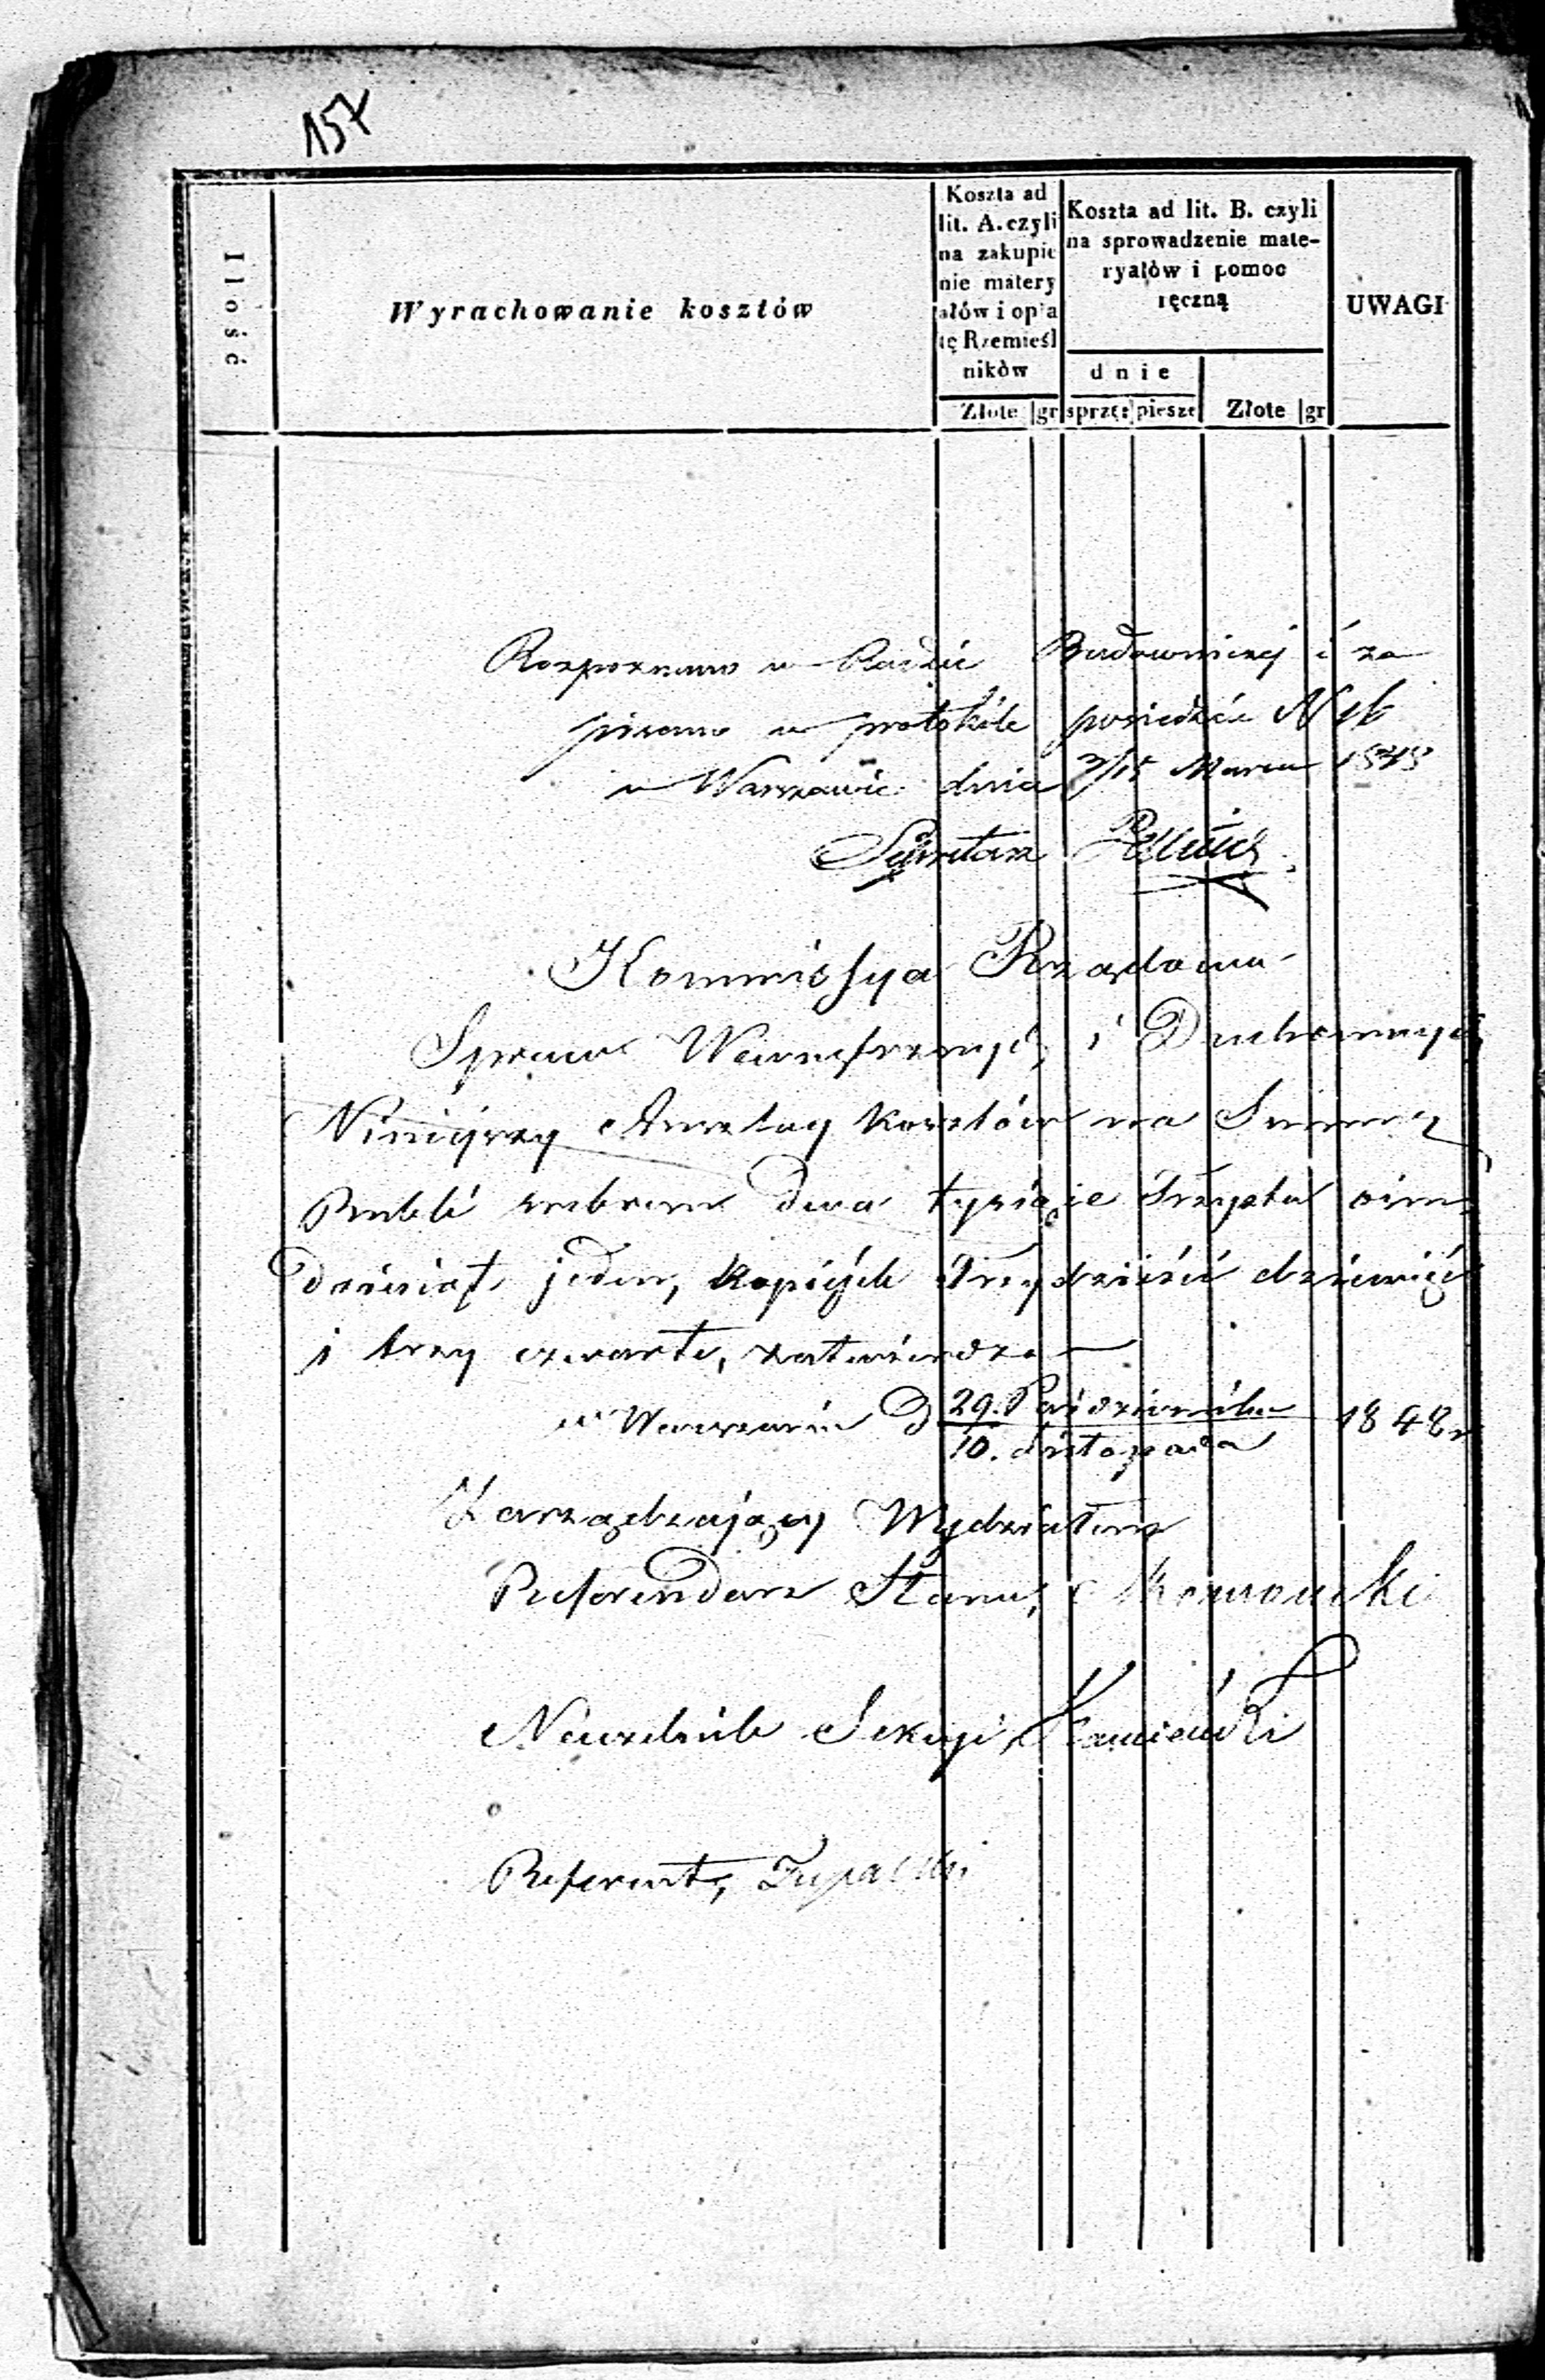 157
Ilość
Wyrachowanie kosztów
Koszta ad
lit. A. czyli
na zakupie
nie matery
ałów i opła
tę Rzemieśl
ników
Złote gr
Koszta ad lit. B. czyli
na sprowadzenie mate-
ryałów i pomoc
ręczną
dnie
sprzę: piesze
Złote gr
UWAGI
Rozpoznano w Radzie Budowniczej i za
pisano w protokóle posiedzeń N
w Warszawie dnia 3/15 Marca 1848
Sekretarz
Kommissya Rządowa
Spraw Wewnętrznych i Duchownych
Niniejszy Anszlag kosztów na Summę
Rubli srebrem dwa tysiące Trzysta ośm
dziesiąt jeden, kopiejek Trzydzieści dziewięć
i trzy czwarte, zatwierdza
w Warszawie d 29. Października 1848 r
10. Listopada
Zarządzający Wydziałem
Referendarz Stanu,
Naczelnik Sekcyi, Kamieński
Referent,